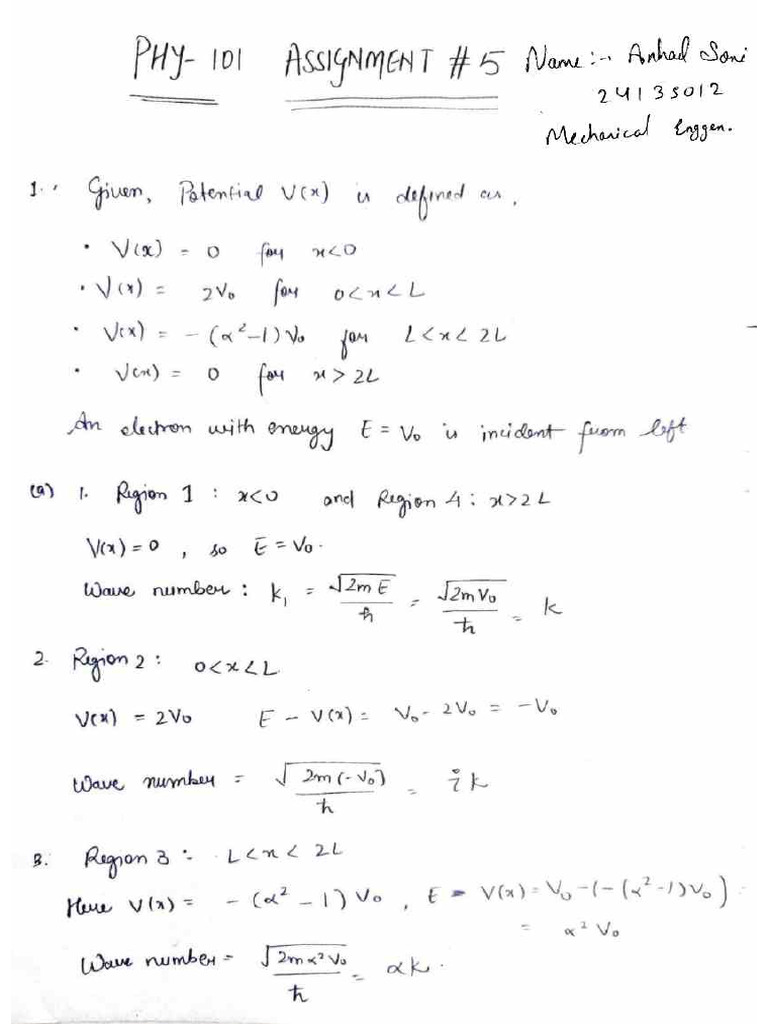 PHY-101 ASSIGNMENT #5 Name :- Anhad Soni
24135012
Mechanical Enggen.
1. Given, Potential V(x) is defined as,
• V(x) = 0 for x<0
• V(x) = 2V₀ for 0<x<L
• V(x) = -(α²-1)V₀ for L<x<2L
• V(x) = 0 for x>2L
An electron with energy E = V₀ is incident from left
(a) 1. Region 1 : x<0 and Region 4 : x>2L
V(x) = 0 , so E = V₀.
Wave number : k₁ = √2mE/ħ = √2mV₀/ħ = k
2. Region 2 : 0<x<L
V(x) = 2V₀ E - V(x) = V₀ - 2V₀ = -V₀
Wave number = √2m(-V₀)/ħ = ik
3. Region 3 : L<x<2L
Here V(x) = -(α²-1)V₀ , E - V(x) = V₀ -(-(α²-1)V₀)
= α²V₀
Wave number = √2mα²V₀/ħ = αk.